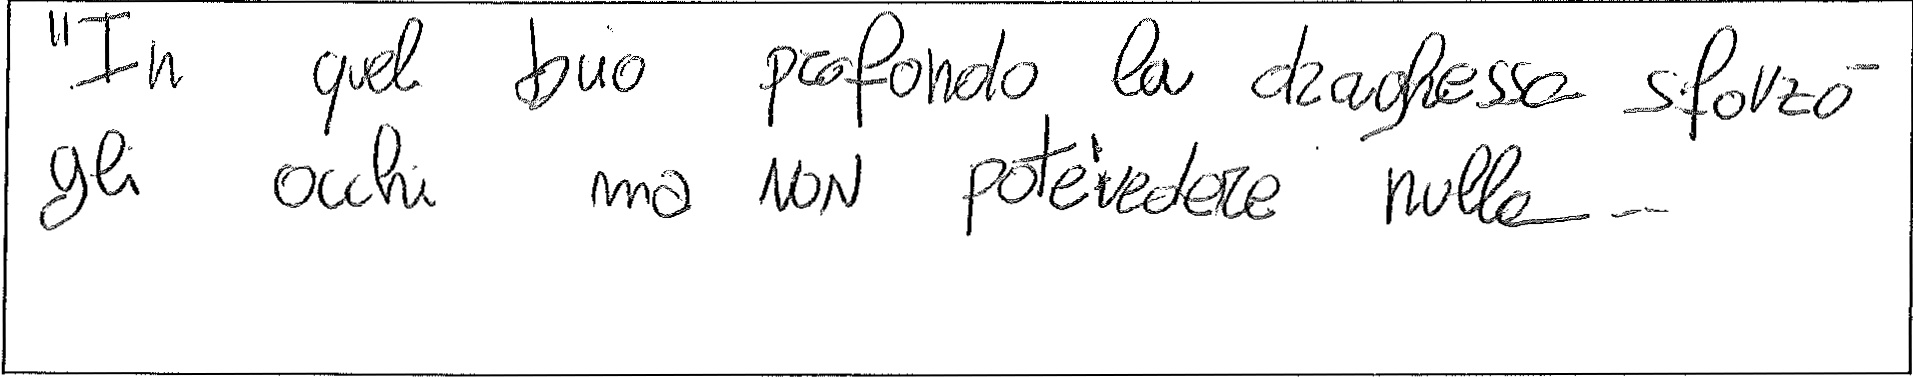 "In quel buio profondo la draghessa sforzò
gli occhi ma non poté vedere nulla...